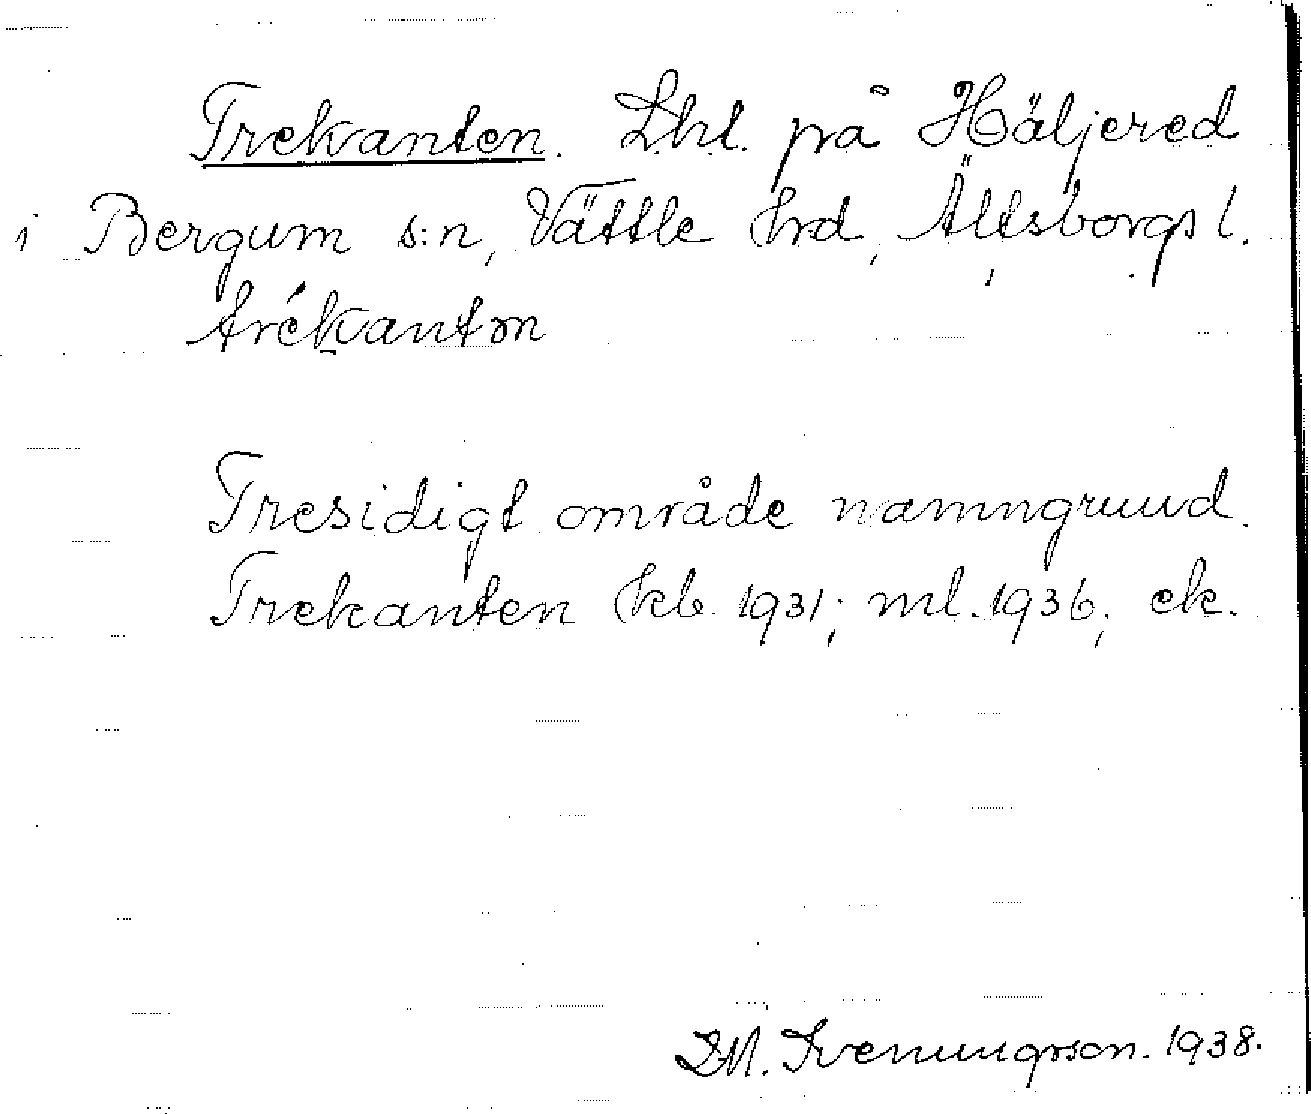 Trekanten. Lht. på Häljered
i Bergum s:n, Vättle hrd, Älfsborgs l.
trékantən
Tresidigt område namngrund.
Trekanten kb. 1931; ml. 1936; ek.
D.M. Svenungsson. 1938.